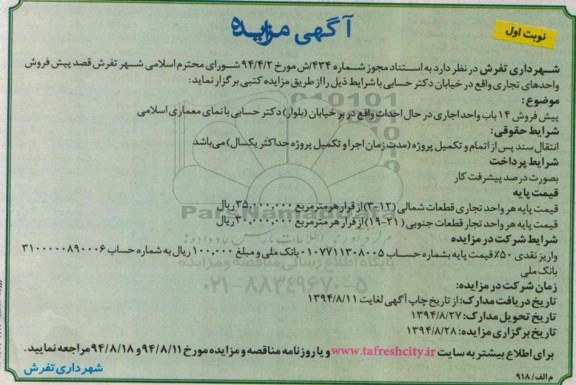 آگهی مزایده
نوبت اول
شهرداری تفرش در نظر دارد به استناد مجوز شماره ۴۳۴/ش مورخ ۹۴/۴/۲ شورای محترم اسلامی شهر تفرش قصد پیش فروش
واحدهای تجاری واقع در خیابان دکتر حسابی با شرایط ذیل را از طریق مزایده کتبی برگزار نماید:
موضوع:
پیش فروش ۱۴ باب واحد اجاری در حال احداث واقع در بر خیابان (بلوار) دکتر حسابی با نمای معماری اسلامی
شرایط حقوقی:
انتقال سند پس از اتمام و تکمیل پروژه (مدت زمان اجرا و تکمیل پروژه حداکثر یکسال) می‌باشد
شرایط پرداخت
بصورت درصد پیشرفت کار
قیمت پایه
قیمت پایه هر واحد تجاری قطعات شمالی (۱۲-۳) از قرار هر مترمربع ۳۵,۰۰۰,۰۰۰ ریال
قیمت پایه هر واحد تجار قطعات جنوبی (۲۱-۱۹) از قرار هر مترمربع ۳۰,۰۰۰,۰۰۰ ریال
شرایط شرکت در مزایده
واریز نقدی ۵۰٪ قیمت پایه بشماره حساب ۰۱۰۷۷۱۱۳۰۸۰۰۵ بانک ملی و مبلغ ۱۰۰,۰۰۰ ریال به شماره حساب ۳۱۰۰۰۰۰۸۹۰۰۰۶
بانک ملی
زمان شرکت در مزایده:
تاریخ دریافت مدارک: از تاریخ چاپ آگهی لغایت ۱۳۹۴/۸/۱۱
تاریخ تحویل مدارک: ۱۳۹۴/۸/۲۷
تاریخ برگزاری مزایده: ۱۳۹۴/۸/۲۸
برای اطلاع بیشتر به سایت www.tafreshcity.ir و یا روزنامه مناقصه و مزایده مورخ ۹۴/۸/۱۱ و ۹۴/۸/۱۸ مراجعه نمایید.
شهرداری تفرش
م الف/ ۹۱۸
ParsNamadData
پایگاه اطلاع رسانی مناقصه و مزایده
۰۲۱-۸۸۳۴۹۶۷۰-۵